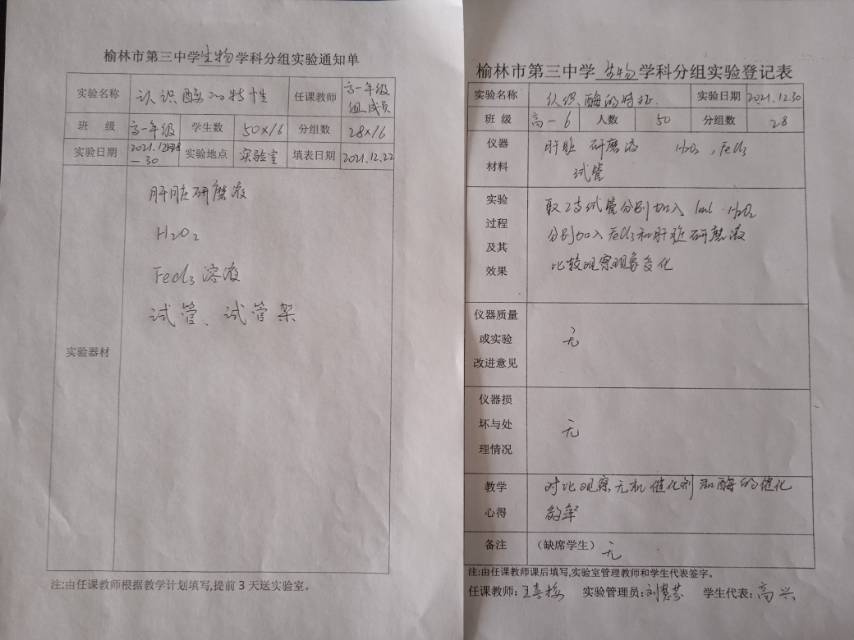 榆林市第三中学生物学科分组实验通知单
实验名称 认识酶的特性 任课教师 高一年级组成员
班 级 高一年级 学生数 50×16 分组数 28×16
实验日期 2021.12 — 30 实验地点 实验室 填表日期 2021.12.22
实验器材
肝脏研磨液
H2O2
FeCl3溶液
试管、试管架
注:由任课教师根据教学计划填写,提前 3 天送实验室。
榆林市第三中学生物学科分组实验登记表
实验名称 认识酶的特征 实验日期 2021.12.30
班 级 高一6 人数 50 分组数 28
仪器材料
肝脏研磨液 H2O2,FeCl3
试管
实验过程及其效果
取2支试管分别加入 1ml H2O2
分别加入FeCl3和肝脏研磨液
比较观察现象变化
仪器质量或实验改进意见 无
仪器损坏与处理情况 无
教学心得
对比观察无机催化剂和酶的催化
效率
备注 (缺席学生) 无
注:由任课教师课后填写,实验室管理教师和学生代表签字。
任课教师: 实验管理员: 学生代表: 高兴